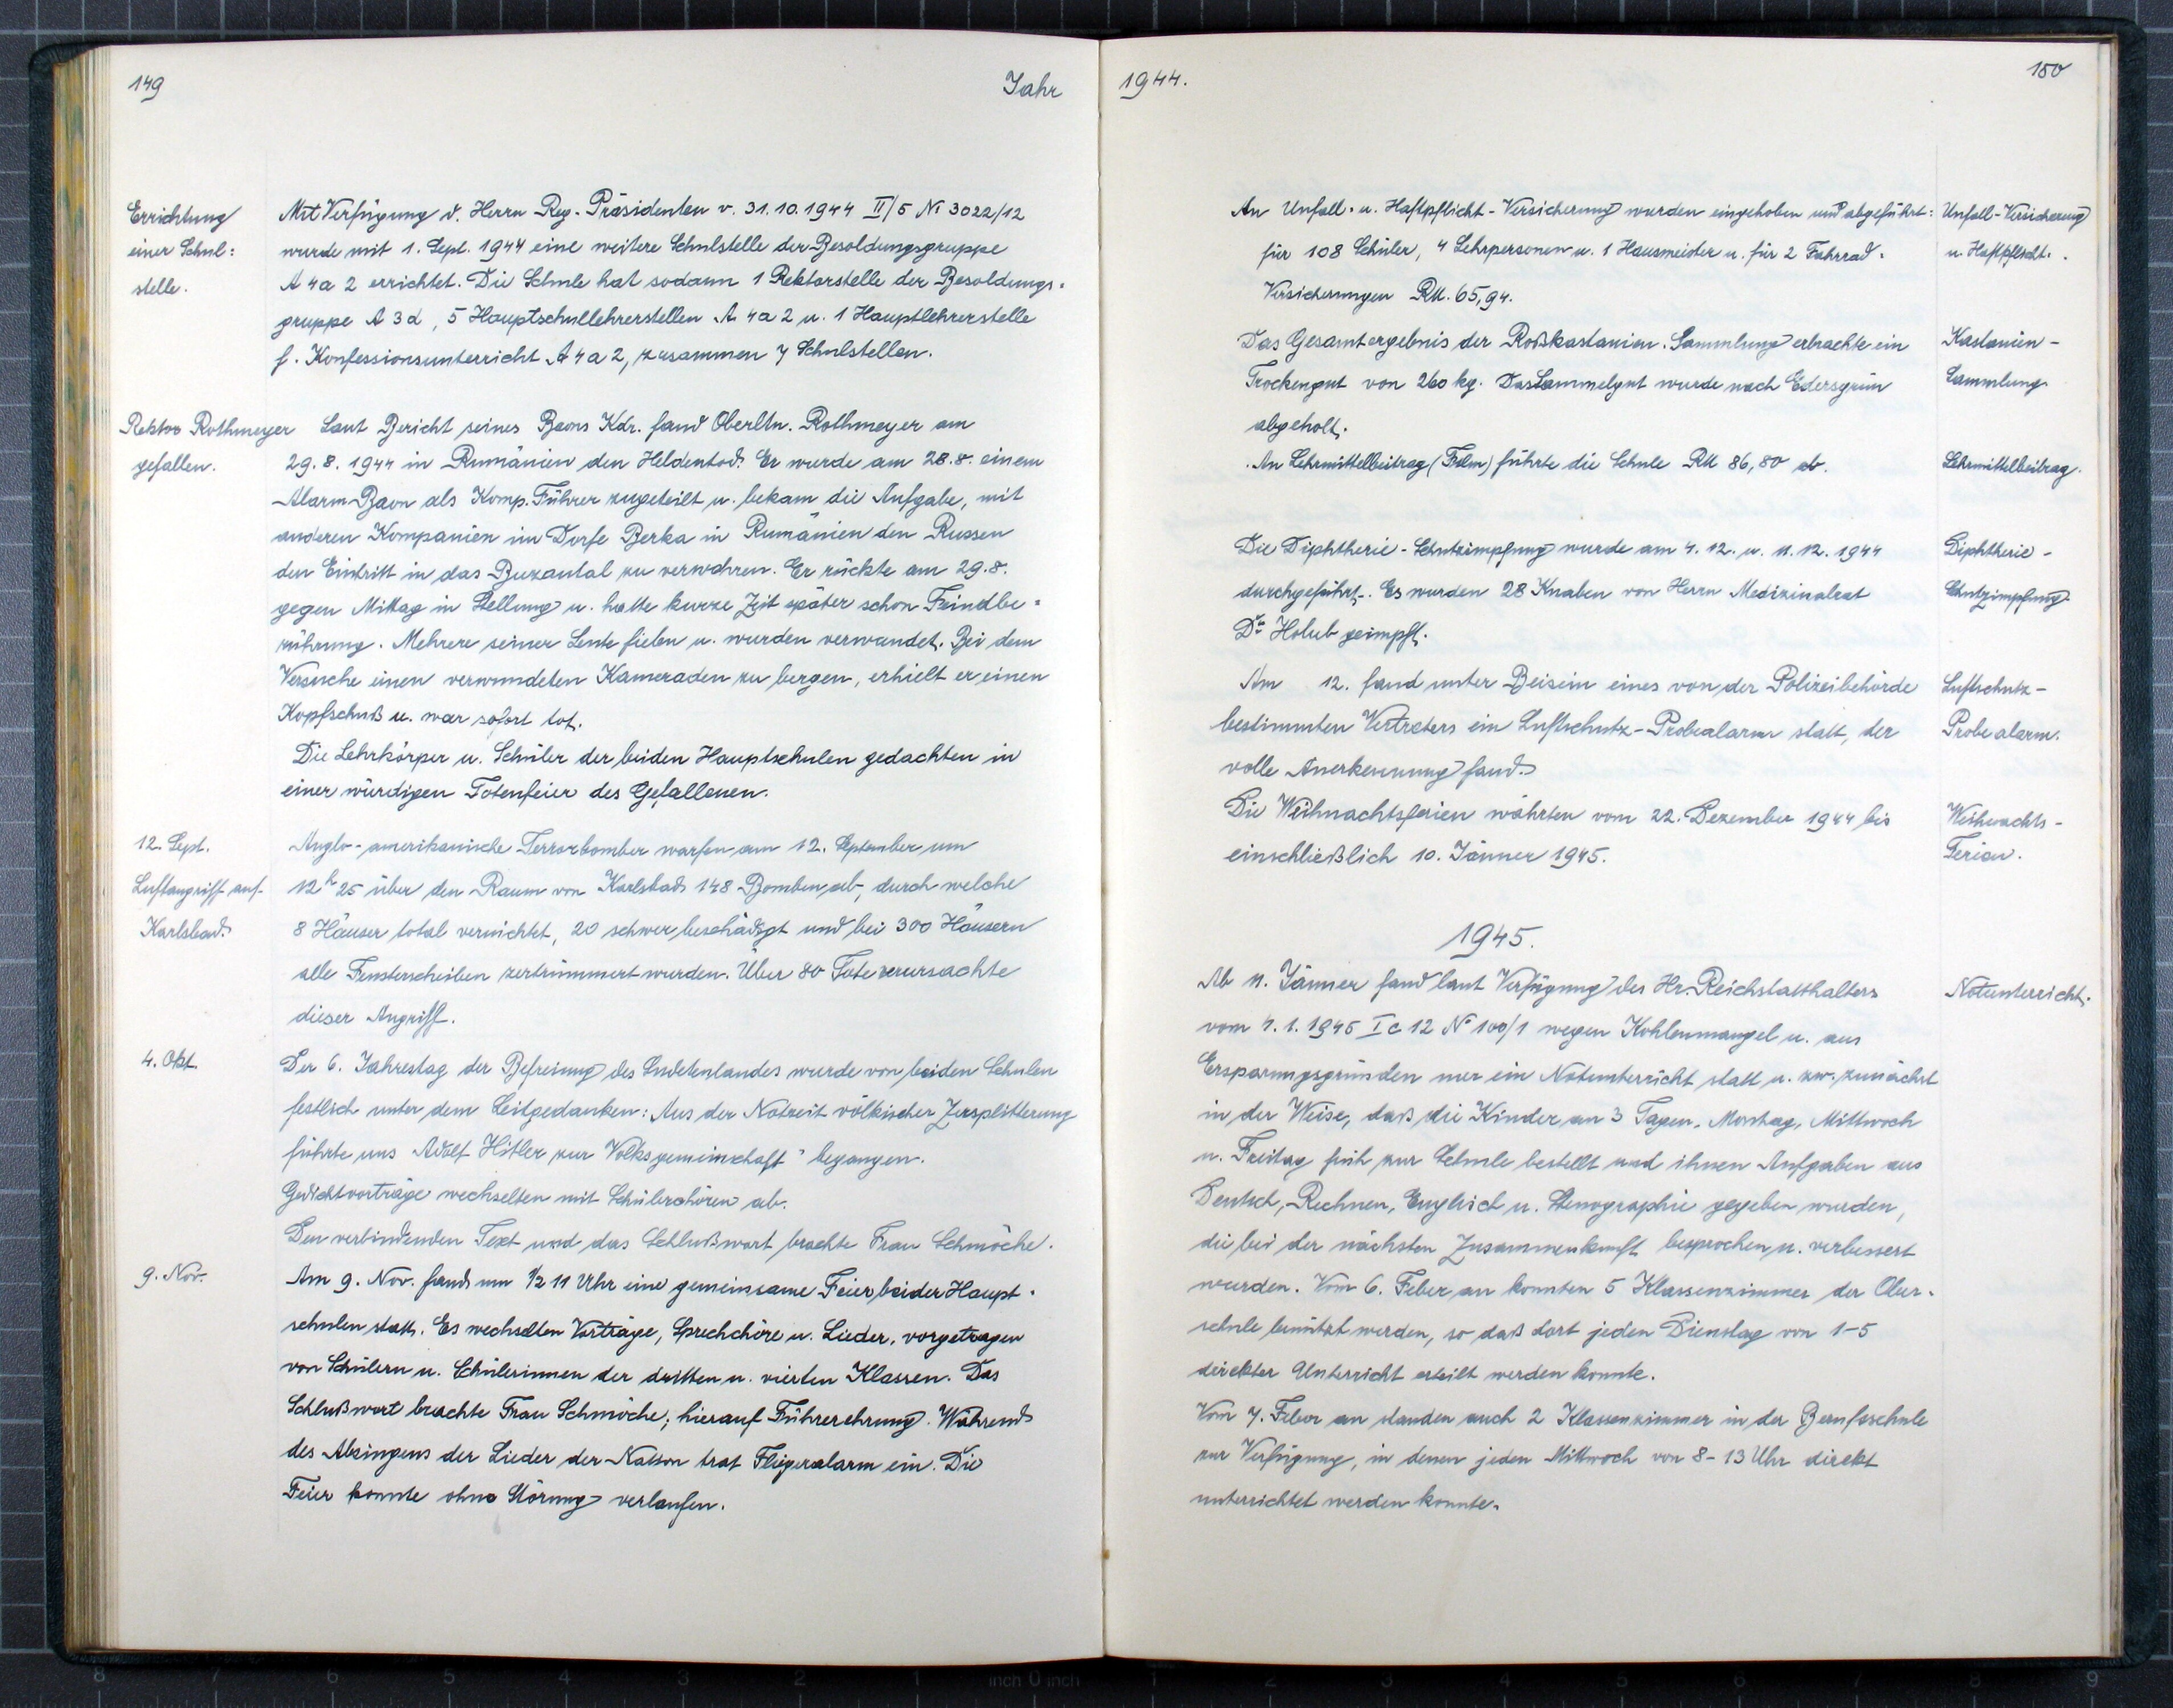 149
Jahr
Errichtung
einer Schul=
stelle.
Mit Verfügung d. Herrn Reg.-Präsidenten v. 31.10.1944 II/5 No 3022/12
wurde mit 1. Sept. 1944 eine weitere Schulstelle der Besoldungsgruppe
A 4a 2 errichtet. Die Schule hat sodann 1 Rektorstelle der Besoldungs=
gruppe A 3d, 5 Hauptschullehrerstellen A 4a 2 u. 1 Hauptlehrerstelle
f. Konfessionsunterricht A 4a 2, zusammen 7 Schulstellen.
Rektor Rothmeyer
gefallen.
Laut Bericht seines Baons Kdr. fand Oberltn. Rothmeyer am
29.8.1944 in Rumänien den Heldentod. Er wurde am 28.8. einem
Alarm-Baon als Komp. Führer zugeteilt u. bekam die Aufgabe, mit
anderen Kompanien im Dorfe Berka in Rumänien den Russen
den Eintritt in das Buzautal zu verwehren. Er rückte am 29.8.
gegen Mittag in Stellung u. hatte kurze Zeit später schon Feindbe=
rührung. Mehrere seiner Leute fielen u. wurden verwundet. Bei dem
Versuche einen verwundeten Kameraden zu bergen, erhielt er einen
Kopfschuß u. war sofort tot.
Die Lehrkörper u. Schüler der beiden Hauptschulen gedachten in
einer würdigen Totenfeier des Gefallenen.
12. Sept.
Luftangriff auf
Karlsbad.
Anglo-amerikanische Terrorbomber warfen am 12. September um
12h 25 über den Raum von Karlsbad 148 Bomben ab, durch welche
8 Häuser total vernichtet, 20 schwer beschädigt und bei 300 Häusern
alle Fensterscheiben zertrümmert wurden. Über 80 Tote verursachte
dieser Angriff.
4. Okt.
Der 6. Jahrestag der Befreiung des Sudetenlandes wurde von beiden Schulen
festlich unter dem Leitgedanken: Aus der Notzeit völkischer Zersplitterung
führte uns Adolf Hitler zur Volksgemeinschaft" begangen.
Gedichtvorträge wechselten mit Schülerchören ab.
Den verbindenden Text und das Schlußwort brachte Frau Schmöche.
9. Nov.
Am 9. Nov. fand um 1/2 11 Uhr eine gemeinsame Feier beider Haupt=
schulen statt. Es wechselten Vorträge, Sprechchöre u. Lieder, vorgetragen
von Schülern u. Schülerinnen der dritten u. vierten Klassen. Das
Schlußwort brachte Frau Schmöche; hierauf Führerehrung. Während
des Absingens der Lieder der Nation trat Fliegeralarm ein. Die
Feier konnte ohne Störung verlaufen.
1944.
150
An Unfall- u. Haftpflicht-Versicherung wurden eingehoben und abgeführt:
für 108 Schüler, 4 Lehrpersonen u. 1 Hausmeister u. für 2 Fahrrad-
Versicherungen RM. 65,94.
Unfall-Versicherung
u. Haftpflicht.
Das Gesamtergebnis der Roßkastanien-Sammlung erbrachte ein
Trockengut von 260 kg. Das Sammelgut wurde nach Edersgrün
abgeholt.
Kastanien-
Sammlung.
An Lehrmittelbeitrag (Film) führte die Schule RM 86,80 ab.
Lehrmittelbeitrag.
Die Diphtherie-Schutzimpfung wurde am 4.12. u. 11.12.1944
durchgeführt. Es wurden 28 Knaben von Herrn Medizinalrat
Dr. Holub geimpft.
Diphtherie-
Schutzimpfung.
Am 12. fand unter Beisein eines von der Polizeibehörde
bestimmten Vertreters ein Luftschutz-Probealarm statt, der
volle Anerkennung fand.
Luftschutz-
Probealarm.
Die Weihnachtsferien währten vom 22. Dezember 1944 bis
einschließlich 10. Jänner 1945.
Weihnachts-
Ferien.
1945.
Ab 11. Jänner fand laut Verfügung des Hr. Reichstatthalters
vom 4.1.1945 I c 12 No 100/1 wegen Kohlenmangel u. aus
Ersparungsgründen nur ein Notunterricht statt u. zw. zunächst
in der Weise, daß die Kinder an 3 Tagen, Montag, Mittwoch
u. Freitag früh zur Schule bestellt und ihnen Aufgaben aus
Deutsch, Rechnen, Englisch u. Stenographie gegeben wurden,
die bei der nächsten Zusammenkunft besprochen u. verbessert
wurden. Vom 6. Feber an konnten 5 Klassenzimmer der Ober-
schule benützt werden, so daß dort jeden Dienstag von 1-5
direkter Unterricht erteilt werden konnte.
Vom 7. Feber an standen auch 2 Klassenzimmer in der Berufsschule
zur Verfügung, in denen jeden Mittwoch von 8-13 Uhr direkt
unterrichtet werden konnte.
Notunterricht.
8 7 6 5 4 3 2 1 inch 0 inch 1 2 3 4 5 6 7 8 9